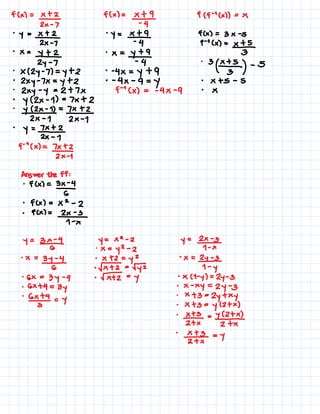 f(x) = x+2
2x-7
• y = x+2
2x-7
• x = y+2
2y-7
• x(2y-7)=y+2
• 2xy-7x=y+2
• 2xy-y=2+7x
• y(2x-1)=7x+2
• y(2x-1) = 7x+2
2x-1 2x-1
• y = 7x+2
2x-1
f⁻¹(x) = 7x+2
2x-1
f(x) = x+9
-4
• y = x+9
-4
• x = y+9
-4
• -4x = y+9
• -4x-9=y
f⁻¹(x) = -4x-9
f(f⁻¹(x)) = x
f(x) = 3x-5
f⁻¹(x) = x+5
3
• 3(x+5) - 5
3
• x+5-5
• x
Answer the ff:
• f(x) = 3x-4
6
• f(x) = x²-2
• f(x) = 2x-3
1-x
y = 3x-4
6
• x = 3y-4
6
• 6x = 3y-4
• 6x+4=3y
• 6x+4 = y
3
y = x²-2
• x = y²-2
• x+2 = y²
• √x+2 = √y²
• √x+2 = y
y = 2x-3
1-x
• x = 2y-3
1-y
• x(1-y)=2y-3
• x-xy=2y-3
• x+3=2y+xy
• x+3= y(2+x)
• x+3 = y(2+x)
2+x 2+x
• x+3 = y
2+x